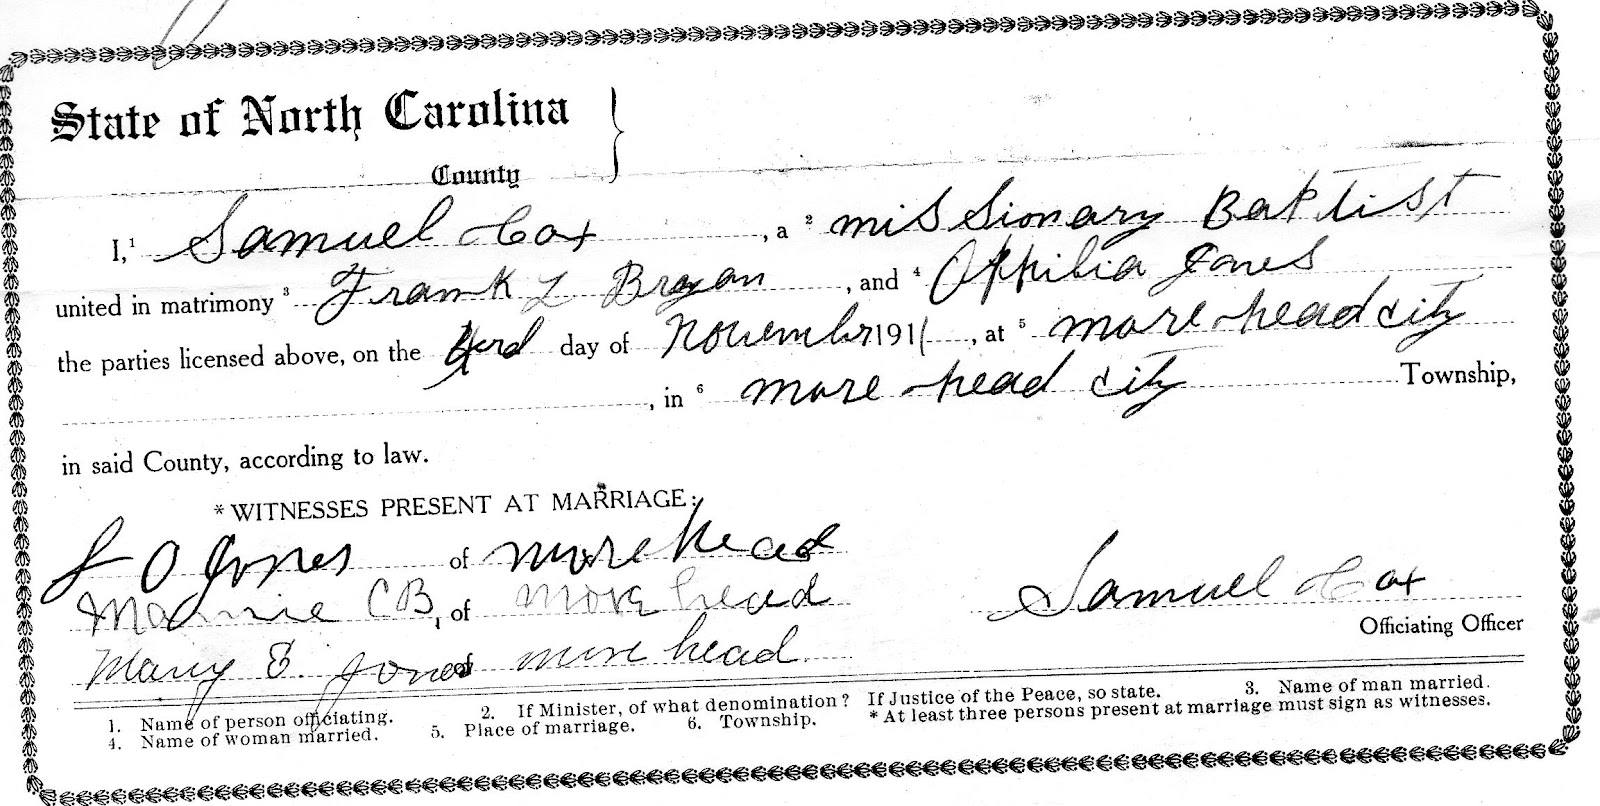 State of North Carolina
County
I,¹ Samuel Cox, a ² missionary Baptist
united in matrimony ³ Frank L Bryan, and ⁴ Oppilia Jones
the parties licensed above, on the day of Novembr 1911, at ⁵ more-head city
, in ⁶ more-head city Township,
in said County, according to law.
*WITNESSES PRESENT AT MARRIAGE:
O Jones of morehead
Mannie CB, of more head
Mary E. Jones of more head
Samuel Cox
Officiating Officer
1. Name of person officiating. 2. If Minister, of what denomination? If Justice of the Peace, so state. 3. Name of man married.
4. Name of woman married. 5. Place of marriage. 6. Township. *At least three persons present at marriage must sign as witnesses.